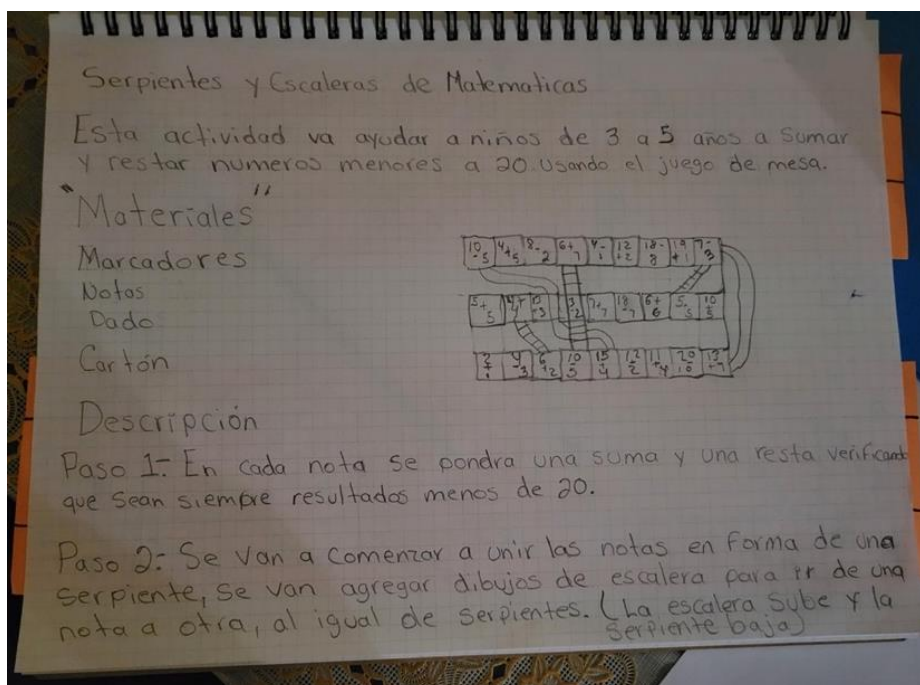 Serpientes y Escaleras de Matematicas
Esta actividad va ayudar a niños de 3 a 5 años a Sumar
y restar numeros menores a 20. Usando el juego de mesa.
"Materiales"
Marcadores
Notas
Dado
Cartón
10 - 5 4 + 5 8 - 2 6 + 7 4 - 1 12 + 2 18 - 8 19 + 1 7 - 3
5 + 5 3 - 2 7 + 7 18 - 7 6 + 6 5 - 5 10 5
4 - 3 6 + 2 10 5 15 4 12 2 11 + 4 20 10
Descripción
Paso 1:- En cada nota se pondra una suma y una resta verificando
que sean siempre resultados menos de 20.
Paso 2:- Se van a comenzar a unir las notas en forma de una
serpiente, se van agregar dibujos de escalera para ir de una
nota a otra, al igual de serpientes. (La escalera sube y la
serpiente baja)